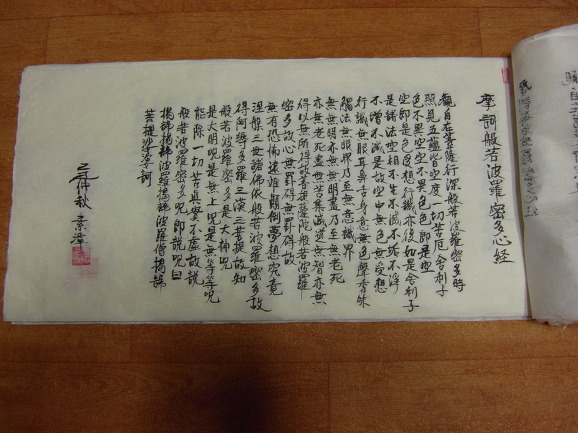 摩訶般若波羅密多心經
觀自在菩薩行深般若波羅密多時
照見五蘊皆空度一切苦厄舍利子
色不異空空不異色色即是空
空即是色受想行識亦復如是舍利子
是諸法空相不生不滅不垢不淨
不增不減是故空中無色無受想
行識無眼耳鼻舌身意無色聲香味
觸法無眼界乃至無意識界
無無明亦無無明盡乃至無老死
亦無老死盡無苦集滅道無智亦無
得以無所得故菩提薩陀般若波羅
密多故心無罣碍無罣碍故
無有恐怖遠離顛倒夢想究竟
涅槃三世諸佛依般若波羅密多故
得阿耨多羅三藐三菩提故知
般若波羅密多是大神呪
是大明呪是無上呪是無等等呪
能除一切苦眞實不虛故說
般若波羅密多呪即說呪曰
揭諦揭諦波羅揭諦波羅僧揭諦
菩提娑婆訶
仲秋 素潭